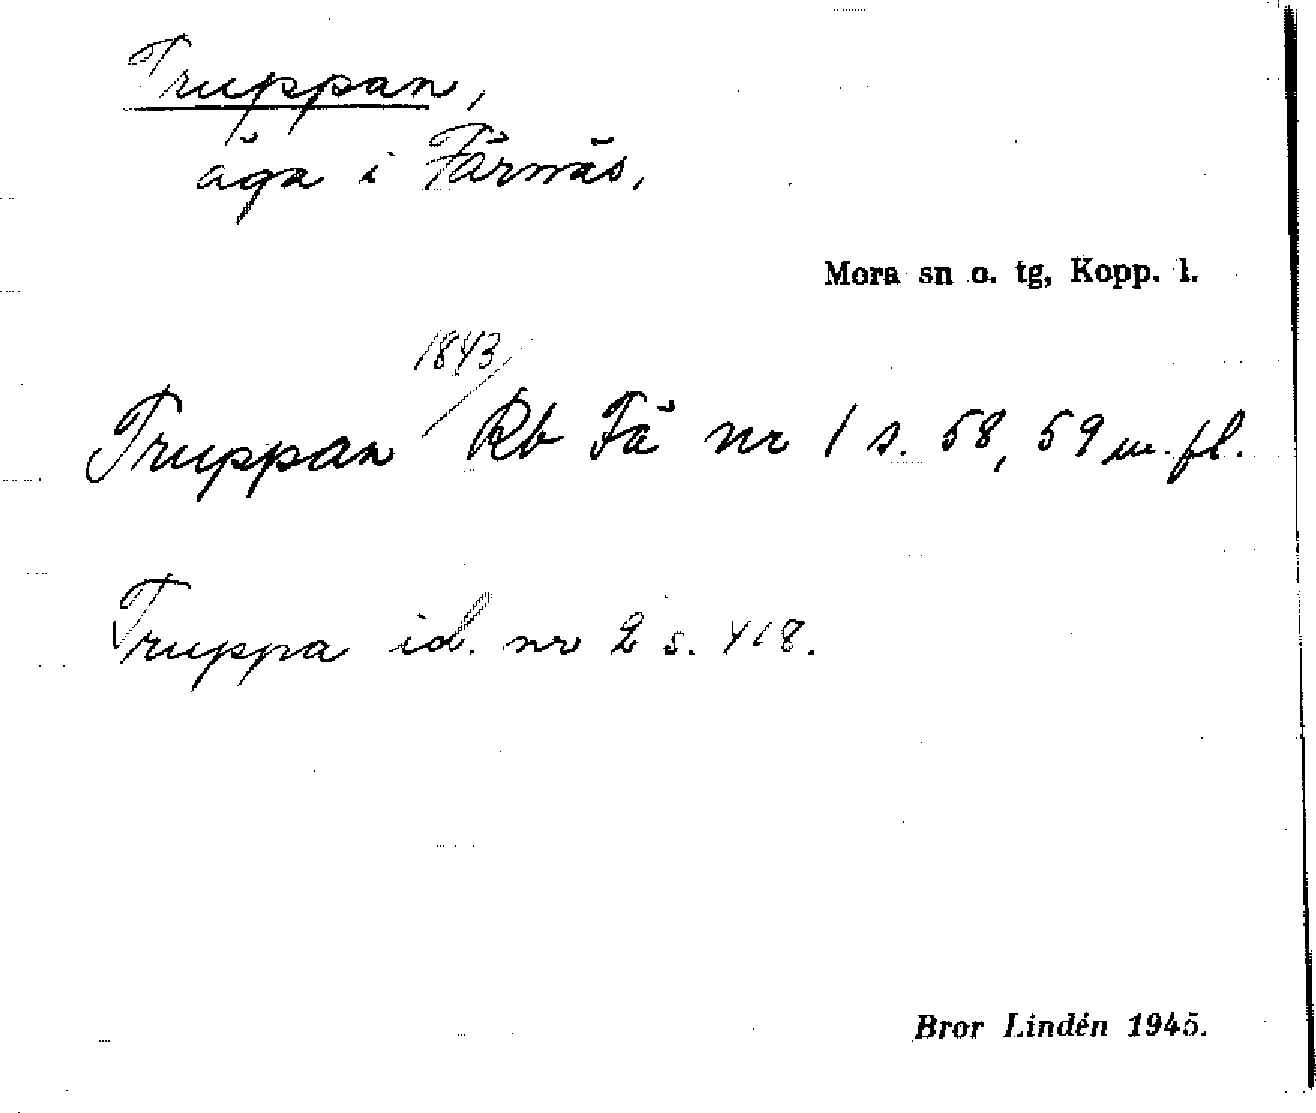 Truppan,
äga i Färnäs,
Mora sn o. tg, Kopp. l.
1843/
Truppan Rb Fä nr 1 s. 58, 59 m. fl.
Truppa id. nr 2 s. 418.
Bror Lindén 1945.